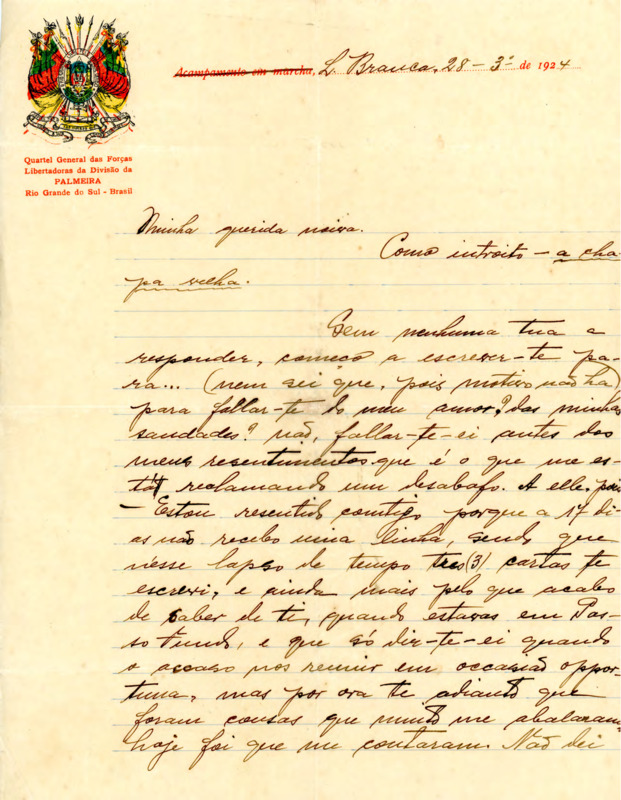 Acampamento em marcha, L. Branca, 28 - 3º de 1924
Quartel General das Forças
Libertadoras da Divisão da
PALMEIRA
Rio Grande do Sul - Brasil
Minha querida noiva.
Como introito - a cha-
pa velha.
Sem nenhuma tua a
responder, começo a escrever-te pa-
ra... (nem sei que, pois motivo não ha)
para fallar-te do meu amor? das minhas
saudades? não, fallar-te-ei antes dos
meus resentimentos que é o que me es-
tá reclamando um desabafo. A elle, pois
- Estou resentido comtigo porque a 17 di-
as não recebo uma linha, sendo que
nesse lapso de tempo tres (3) cartas te
escrevi, e ainda mais pelo que acabo
de saber de ti, quando estavas em Pas-
so Fundo, e que só dir-te-ei quando
o accaso nos reunir em occasião oppor-
tuna, mas por ora te adianto que
foram cousas que muito me abalaram,
hoje foi que me contaram. Não dei